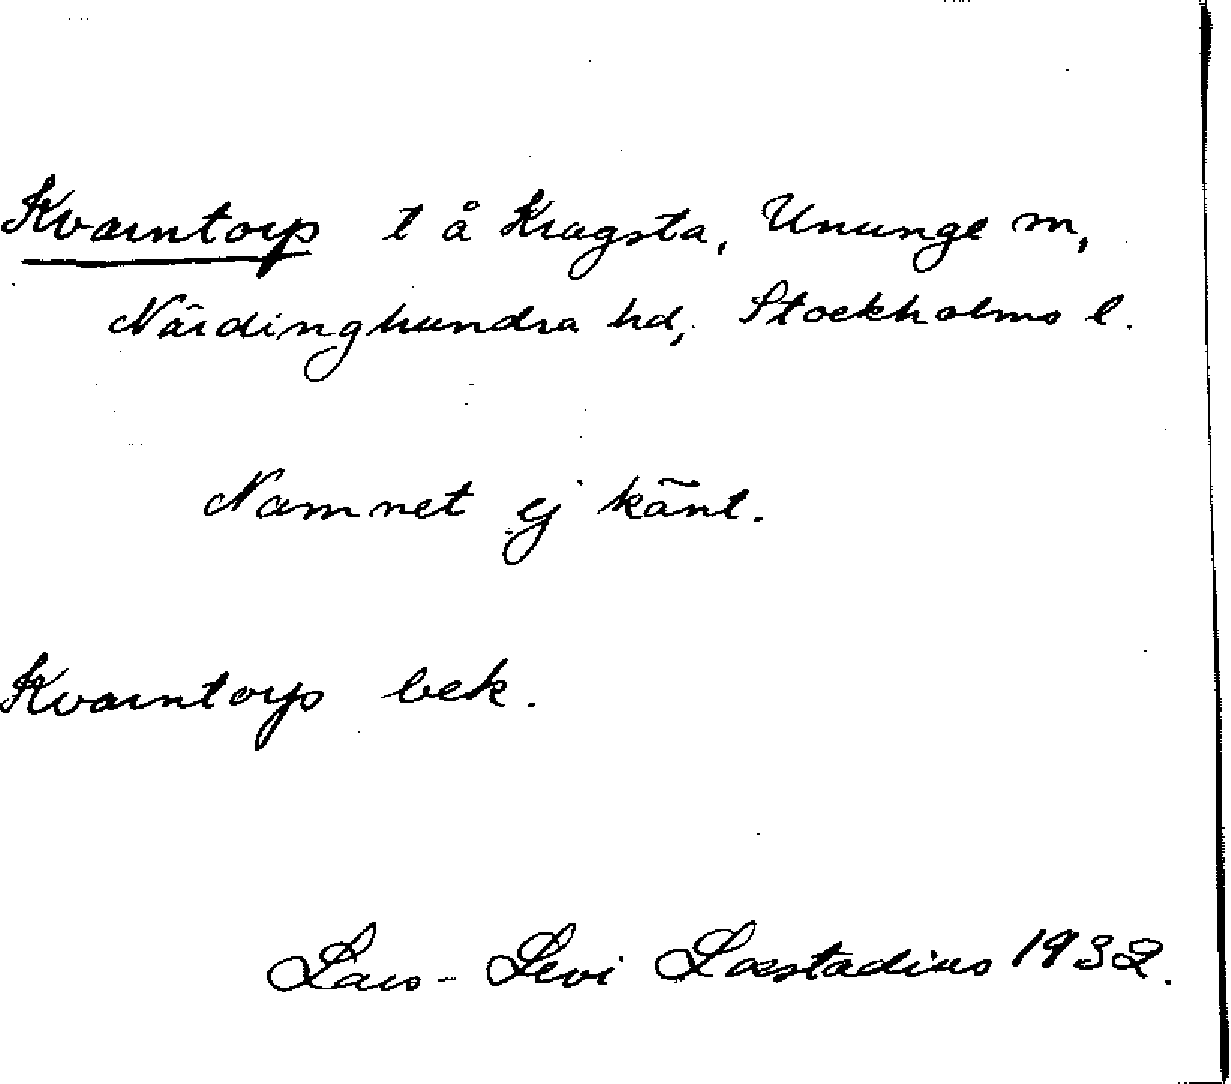 Kvarntorp t å Kragsta, Ununge sn,
Närdinghundra hd, Stockholms l.
Namnet ej känt.
Kvarntorp bek.
Lars-Levi Læstadius 1932.